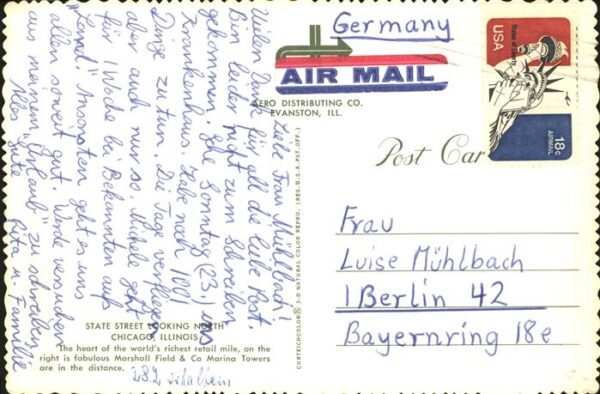 Germany
AIR MAIL
AERO DISTRIBUTING CO.
EVANSTON, ILL.
Post Car
Statue of Liberty
USA
18c
AIRMAIL
Liebe Frau Mühlbach!
Vielen Dank für all die liebe Post.
Bin leider nicht zum Schreiben
gekommen. Gehe Sonntag (23.) ins
Krankenhaus. Habe noch 1001
Dinge zu tun. Die Tage verfliegen
aber auch nur so. Michele geht
für 1 Woche bei Bekannten aufs
"Land". Ansonsten geht es uns
allen soweit gut. Werde versuchen
aus meinem "Urlaub" zu schreiben
Alles Gute Rita u. Familie
CURTEICHCOLOR® 3-D NATURAL COLOR REPRO. (REG. U.S.A. PAT. OFF.)
Frau
Luise Mühlbach
1 Berlin 42
Bayernring 18e
STATE STREET LOOKING NORTH
CHICAGO, ILLINOIS
The heart of the world's richest retail mile, on the
right is fabulous Marshall Field & Co Marina Towers
are in the distance.